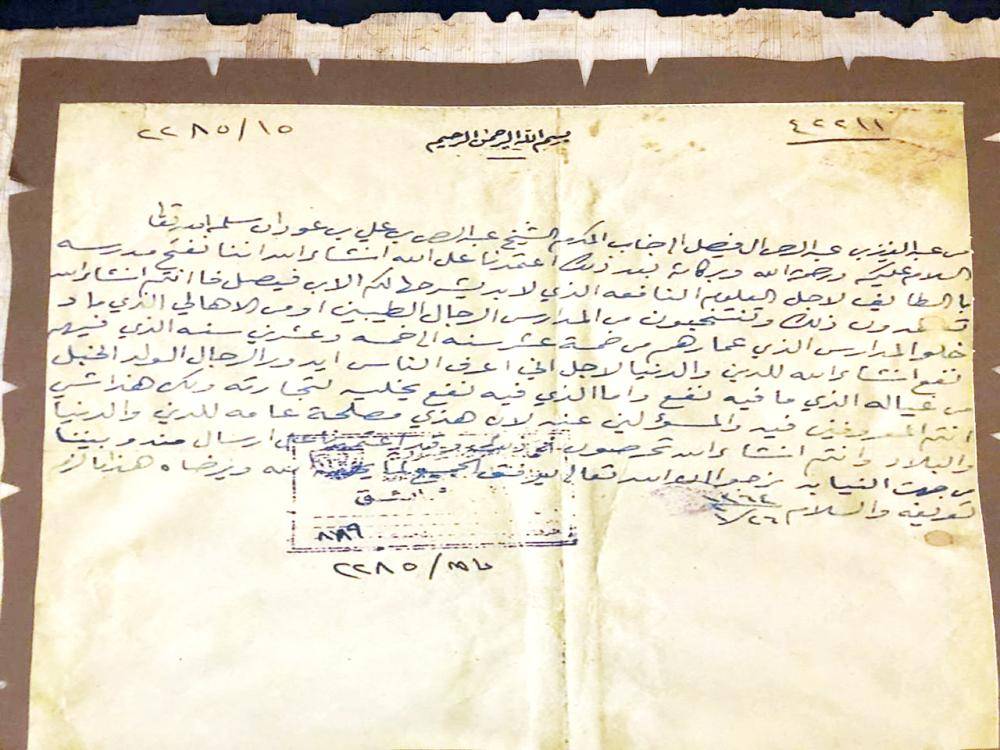 ٢٢٨٥/١٥
بسم الله الرحمن الرحيم
٤٢٢١١
من عبدالعزيز بن عبدالرحمن الفيصل الى جناب المكرم الشيخ عبدالرحمن بن علي بن عودان سلمه الله تعالى
السلام عليكم ورحمة الله وبركاته بعد ذلك اعتمدنا على الله انشاء الله اننا نفتح مدرسه
بالطايف لاجل العلوم النافعه الذي لابد يشرحها لكم الابن فيصل فا انتم انشاء الله
ذلك وتنتخبون من المدارس الرجال الطيبين او من الاهالي الذي ما
المدارس الذي عمارهم من خمسة عشر سنه الى خمسه وعشرين سنه الذي فيهم
نفع انشاء الله للدين والدنيا لاجل اني اعرف الناس الرجال الولد الخبل
من عياله الذي ما فيه نفع واما الذي فيه نفع يخليه لتجارته ولكن هذا شي
انتم المعروضين فيه والمسؤلين عنه لان هذي مصلحة عامه للدين والدنيا
والبلاد وانتم انشاء الله تحرصون ارسال مندوبينا
من جهت النيابه نرجو الله تعالى يوفق الجميع لما يحبه ويرضاه هذا مالزم
تعريفه والسلام ١٣٦٤
٦/٢٦
٨٧٨٩
٢٢٨٥